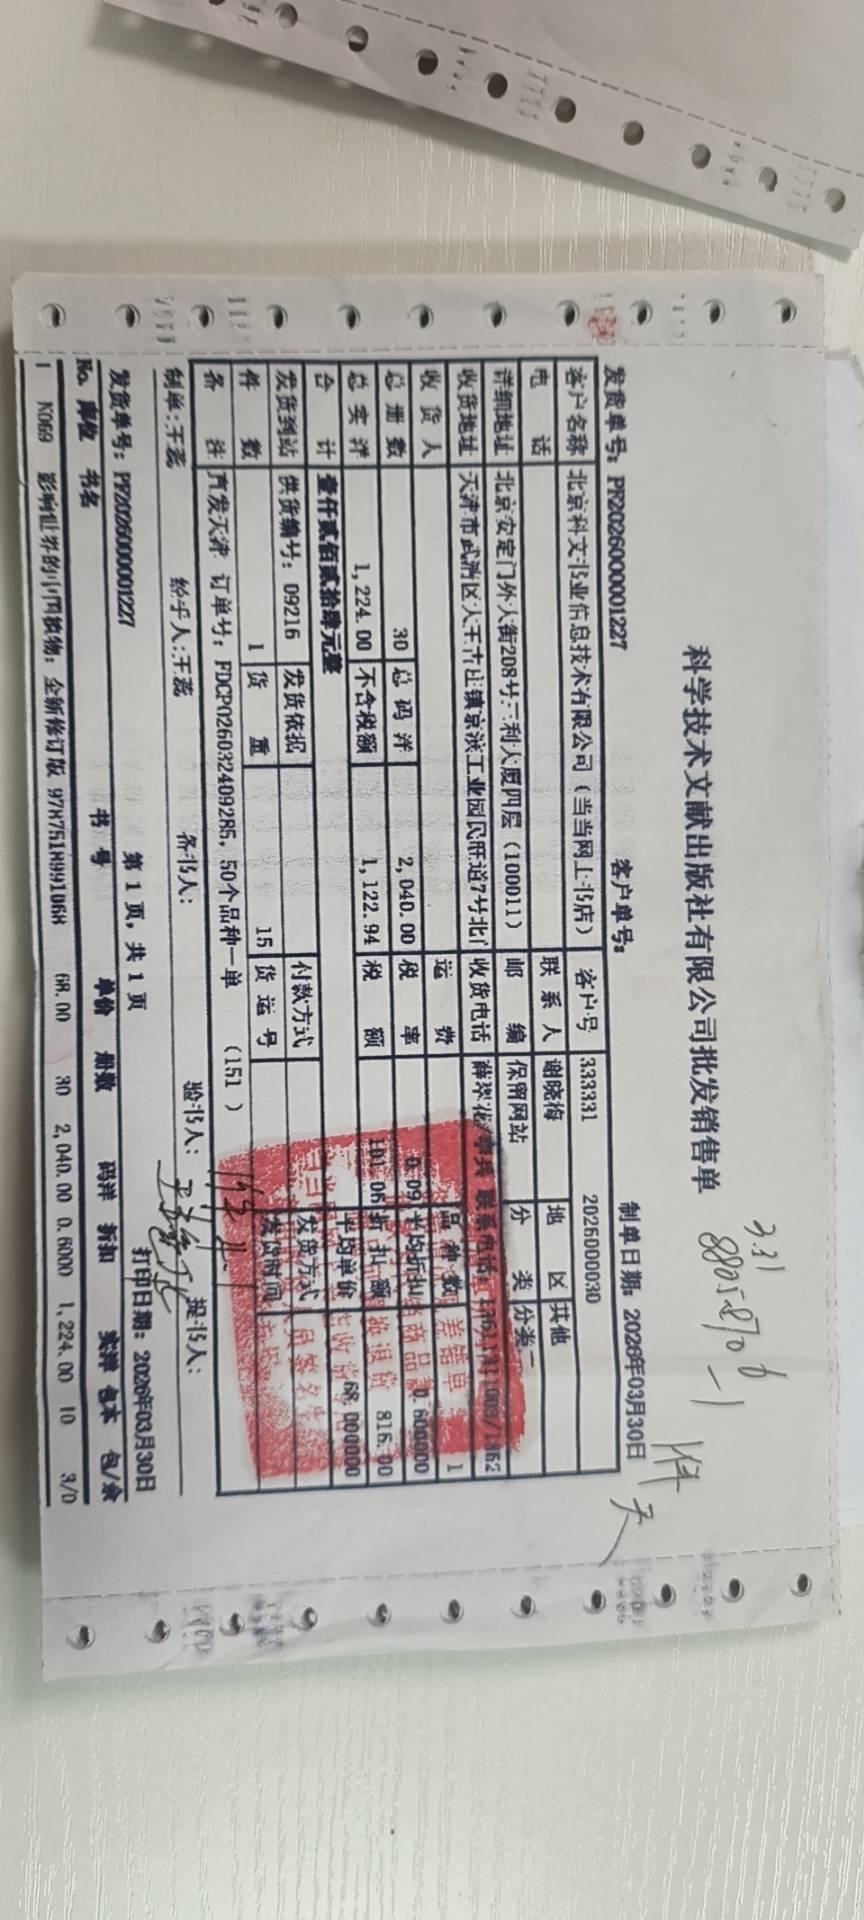 科学技术文献出版社有限公司批发销售单
3.31
88058706
-1
1件
天
发货单号: PF2026000001227 客户单号: 制单日期: 2026年03月30日
客户名称 北京科文书业信息技术有限公司(当当网上书店) 客户号 333331 2026000030
电 话 联系人 谢晓梅 地 区 其他
详细地址 北京安定门外大街208号三利大厦四层(100011) 邮 编 保留网站 分 类 分类二
收货地址 天津市武清区大王古庄镇京滨工业园民旺道7号北门 收货电话 薛翠花
收 货 人 运 费 品 种 数 1
总 册 数 30 总 码 洋 2,040.00 税 率 0.09 平均折扣 0.600000
总 实 洋 1,224.00 不含税额 1,122.94 税 额 101.06 折 扣 额 816.00
合 计 壹仟贰佰贰拾肆元整 平均单价 68.000000
发货到站 供货编号: 09216 发货依据 付款方式 发货方式
件 数 1 货 重 15 货 运 号 发货时间
备 注 直发天津 订单号: FDCP026032409285, 50个品种一单 (151 )
制单:王蕊 经手人:王蕊 备书人: 验书人: 提书人:
发货单号: PF2026000001227 第 1 页, 共 1 页 打印日期: 2026年03月30日
No. 库位 书名 书 号 单价 册数 码洋 折扣 实洋 包本 包/余
1 N069 影响世界的中国植物: 全新修订版 9787518991068 68.00 30 2,040.00 0.6000 1,224.00 10 3/0